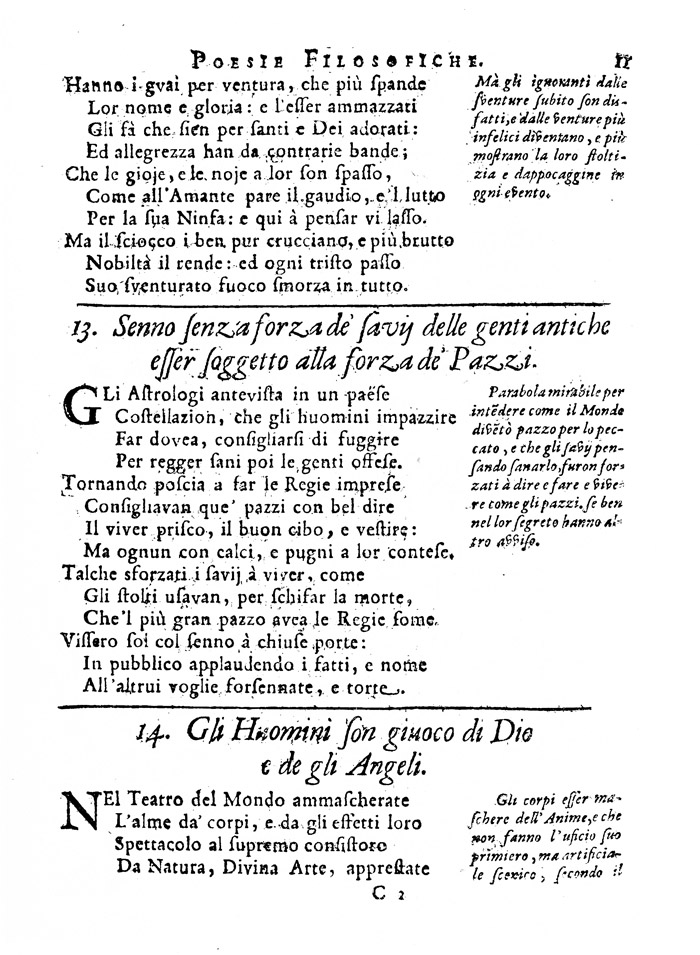 POESIE FILOSOFICHE. 11
Hanno i guai per ventura, che più ſpande
Lor nome e gloria: e l'eſſer ammazzati
Gli fà che ſien per santi e Dei adorati:
Ed allegrezza han da contrarie bande;
Che le gioje, e le noje a lor ſon ſpaſſo,
Come all'Amante pare il gaudio, e 'l lutto
Per la ſua Ninfa: e quì à penſar vi laſſo.
Ma il ſciocco i ben pur crucciano, e più brutto
Nobiltà il rende: ed ogni triſto paſſo
Suo ſventurato fuoco ſmorza in tutto.
Mà gli ignoranti dalle
ſventure ſubito ſon diſ-
fatti, e dalle venture più
infelici diventano, e più
moſtrano la loro ſtolti-
zia e dappocaggine in
ogni evento.
13. Senno ſenza forza de' ſavij delle genti antiche
eſſer ſoggetto alla forza de' Pazzi.
GLi Aſtrologi antevista in un paëſe
Coſtellazion, che gli huomini impazzire
Far dovea, conſigliarſi di fuggire
Per regger ſani poi le genti offeſe.
Tornando poſcia a far le Regie impreſe
Conſigliavan que' pazzi con bel dire
Il viver priſco, il buon cibo, e veſtire:
Ma ognun con calci, e pugni a lor conteſe.
Talche sforzati i ſavij à viver, come
Gli ſtolti uſavan, per ſchifar la morte,
Che'l più gran pazzo avea le Regie ſome.
Viſſero ſol col ſenno à chiuſe porte:
In pubblico applaudendo i fatti, e nome
All'altrui voglie forſennate, e torte.
Parabola mirabile per
intēdere come il Mondo
divētò pazzo per lo pec-
cato, e che gli ſavij pen-
ſando ſanarlo, furon for-
zati à dire e fare e vive-
re come gli pazzi. ſe ben
nel lor ſegreto hanno al-
tro avviſo.
14. Gli Huomini ſon giuoco di Dio
e de gli Angeli.
NEl Teatro del Mondo ammaſcherate
L'alme da' corpi, e da gli effetti loro
Spettacolo al ſupremo conſiſtoro
Da Natura, Divina Arte, appreſtate
Gli corpi eſſer ma-
ſchere dell'Anime, e che
non fanno l'uficio ſuo
primiero, ma artificia-
le ſcenico, ſecondo il
C 2